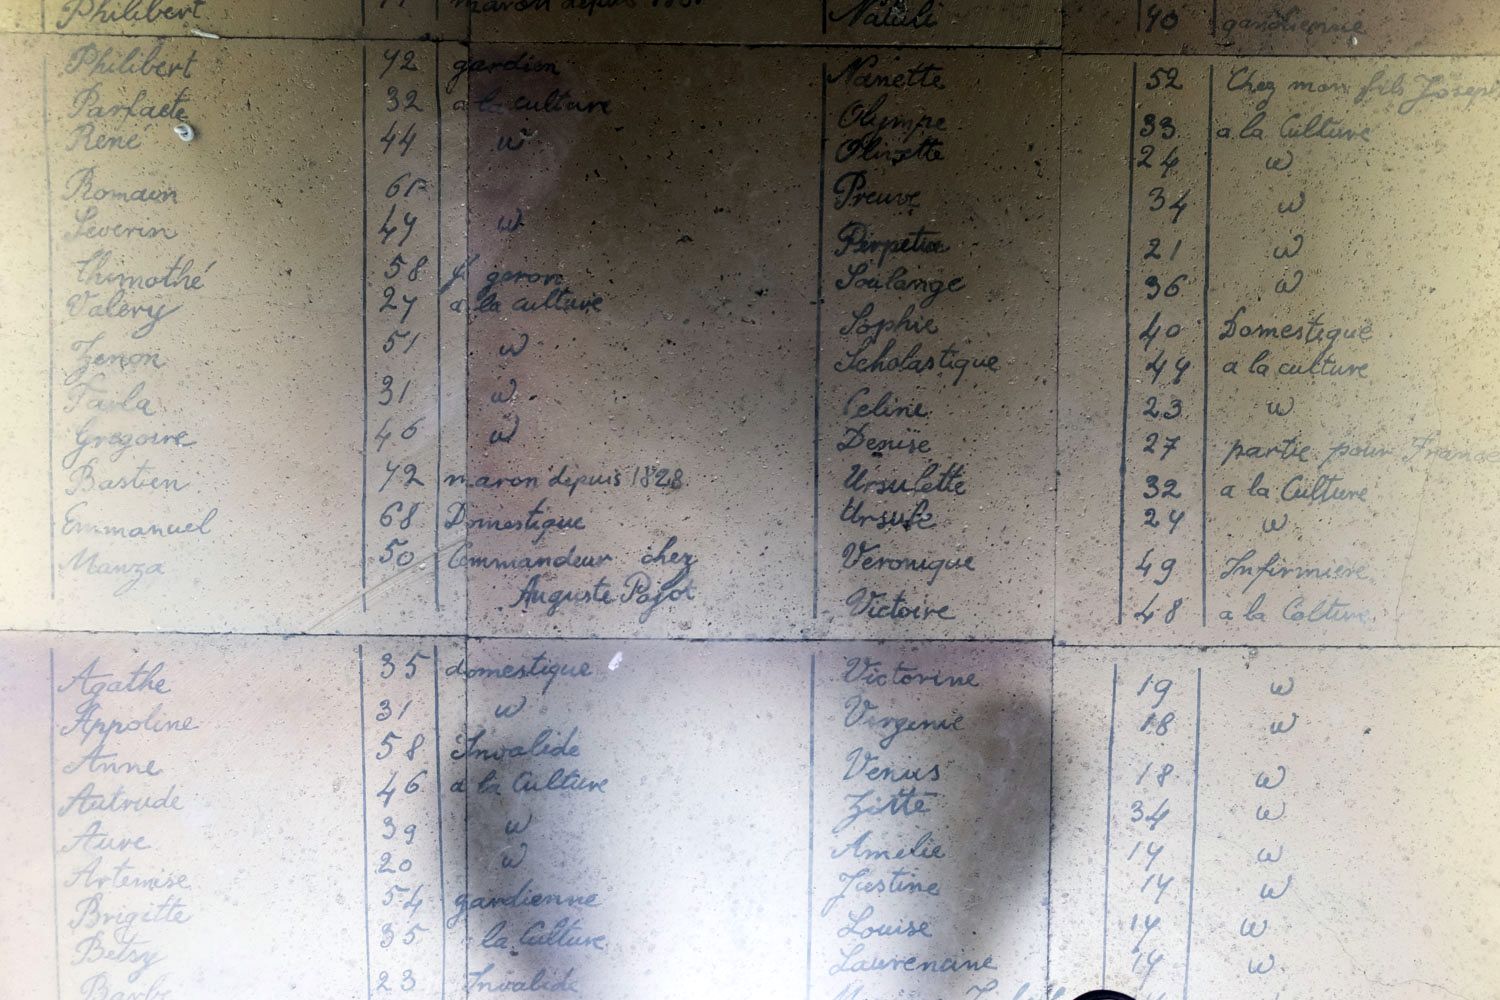 Philibert
maron depuis
Philibert 42 gardien
Parfaete 32 a la culture
René 44 w
Romain
Severin 44 w
Thimothé 58 geron
Valery 24 a la culture
Zenon 51 w
Farla 31 w
Gregoire 46 w
Bastien 42 maron depuis 1828
Emmanuel 68 Domestique
Manza 50 Commandeur chez
Auguste Pajot
Agathe 35 domestique
Appoline 31 w
Anne 58 Invalide
Autrude 46 a la Culture
Aure 39 w
Artemise 20 w
Brigitte 54 gardienne
Betsy 35 la Culture
Barbe 23 Invalide
Natuli 40 gardienne
Nanette 52 Chez mon fils Joseph
Olympe 33 a la Culture
Olinette 24 w
Preuve 34 w
Perpetue 21 w
Soulange 36 w
Sophie 40 Domestique
Scholastique 44 a la culture
Celine 23 w
Denise 27 partie pour France
Ursulette 32 a la Culture
Ursule 24 w
Veronique 49 Infirmiere
Victoire 48 a la Colture
Victorine 19 w
Virginie 18 w
Venus 18 w
Zitte 34 w
Amelie 14 w
Justine 14 w
Louise 14 w
Laurencine 14 w